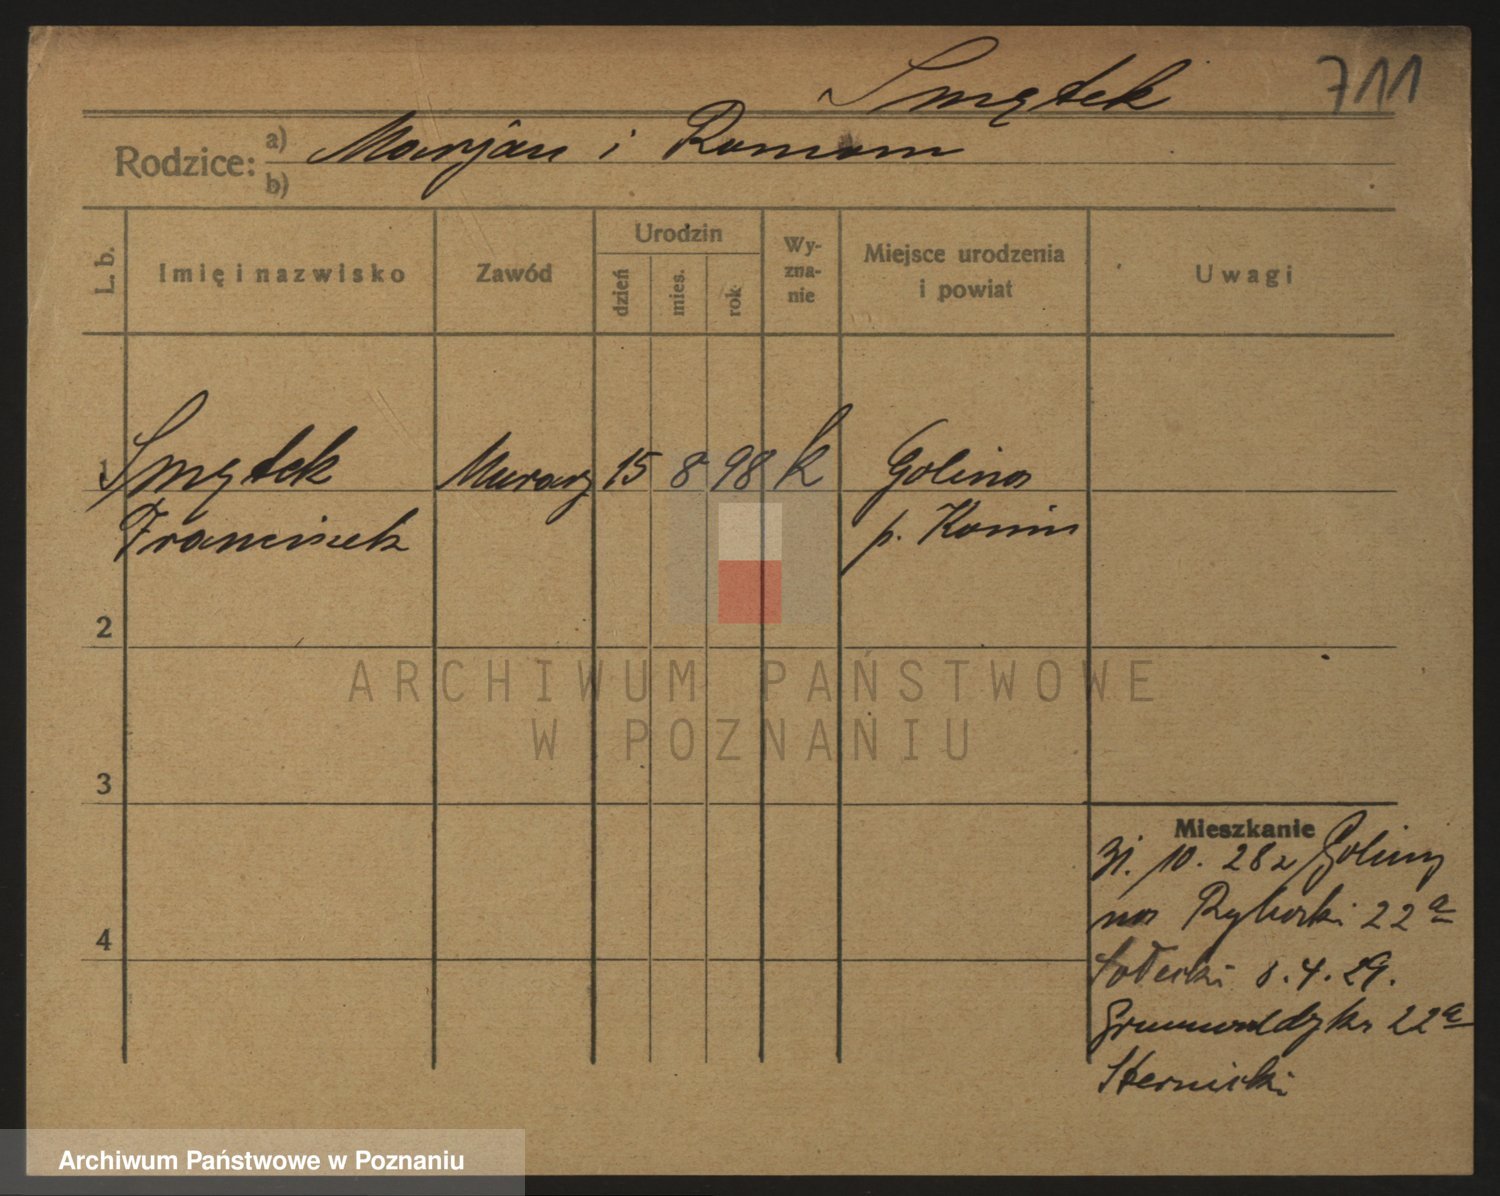 Smętek 711
Rodzice: a) Marjan i Roman
b)
L. b. Imię i nazwisko Zawód Urodzin dzień mies. rok Wy-zna-nie Miejsce urodzenia i powiat Uwagi
1 Smętek Murarz 15 8 98 k Golina
Franciszek p. Konin
2
3
4
Mieszkanie
31. 10. 28 z Goliny
na Rybaki 22a
8. 4. 29.
Grunwaldzka 22a
ARCHIWUM PAŃSTWOWE
W POZNANIU
Archiwum Państwowe w Poznaniu